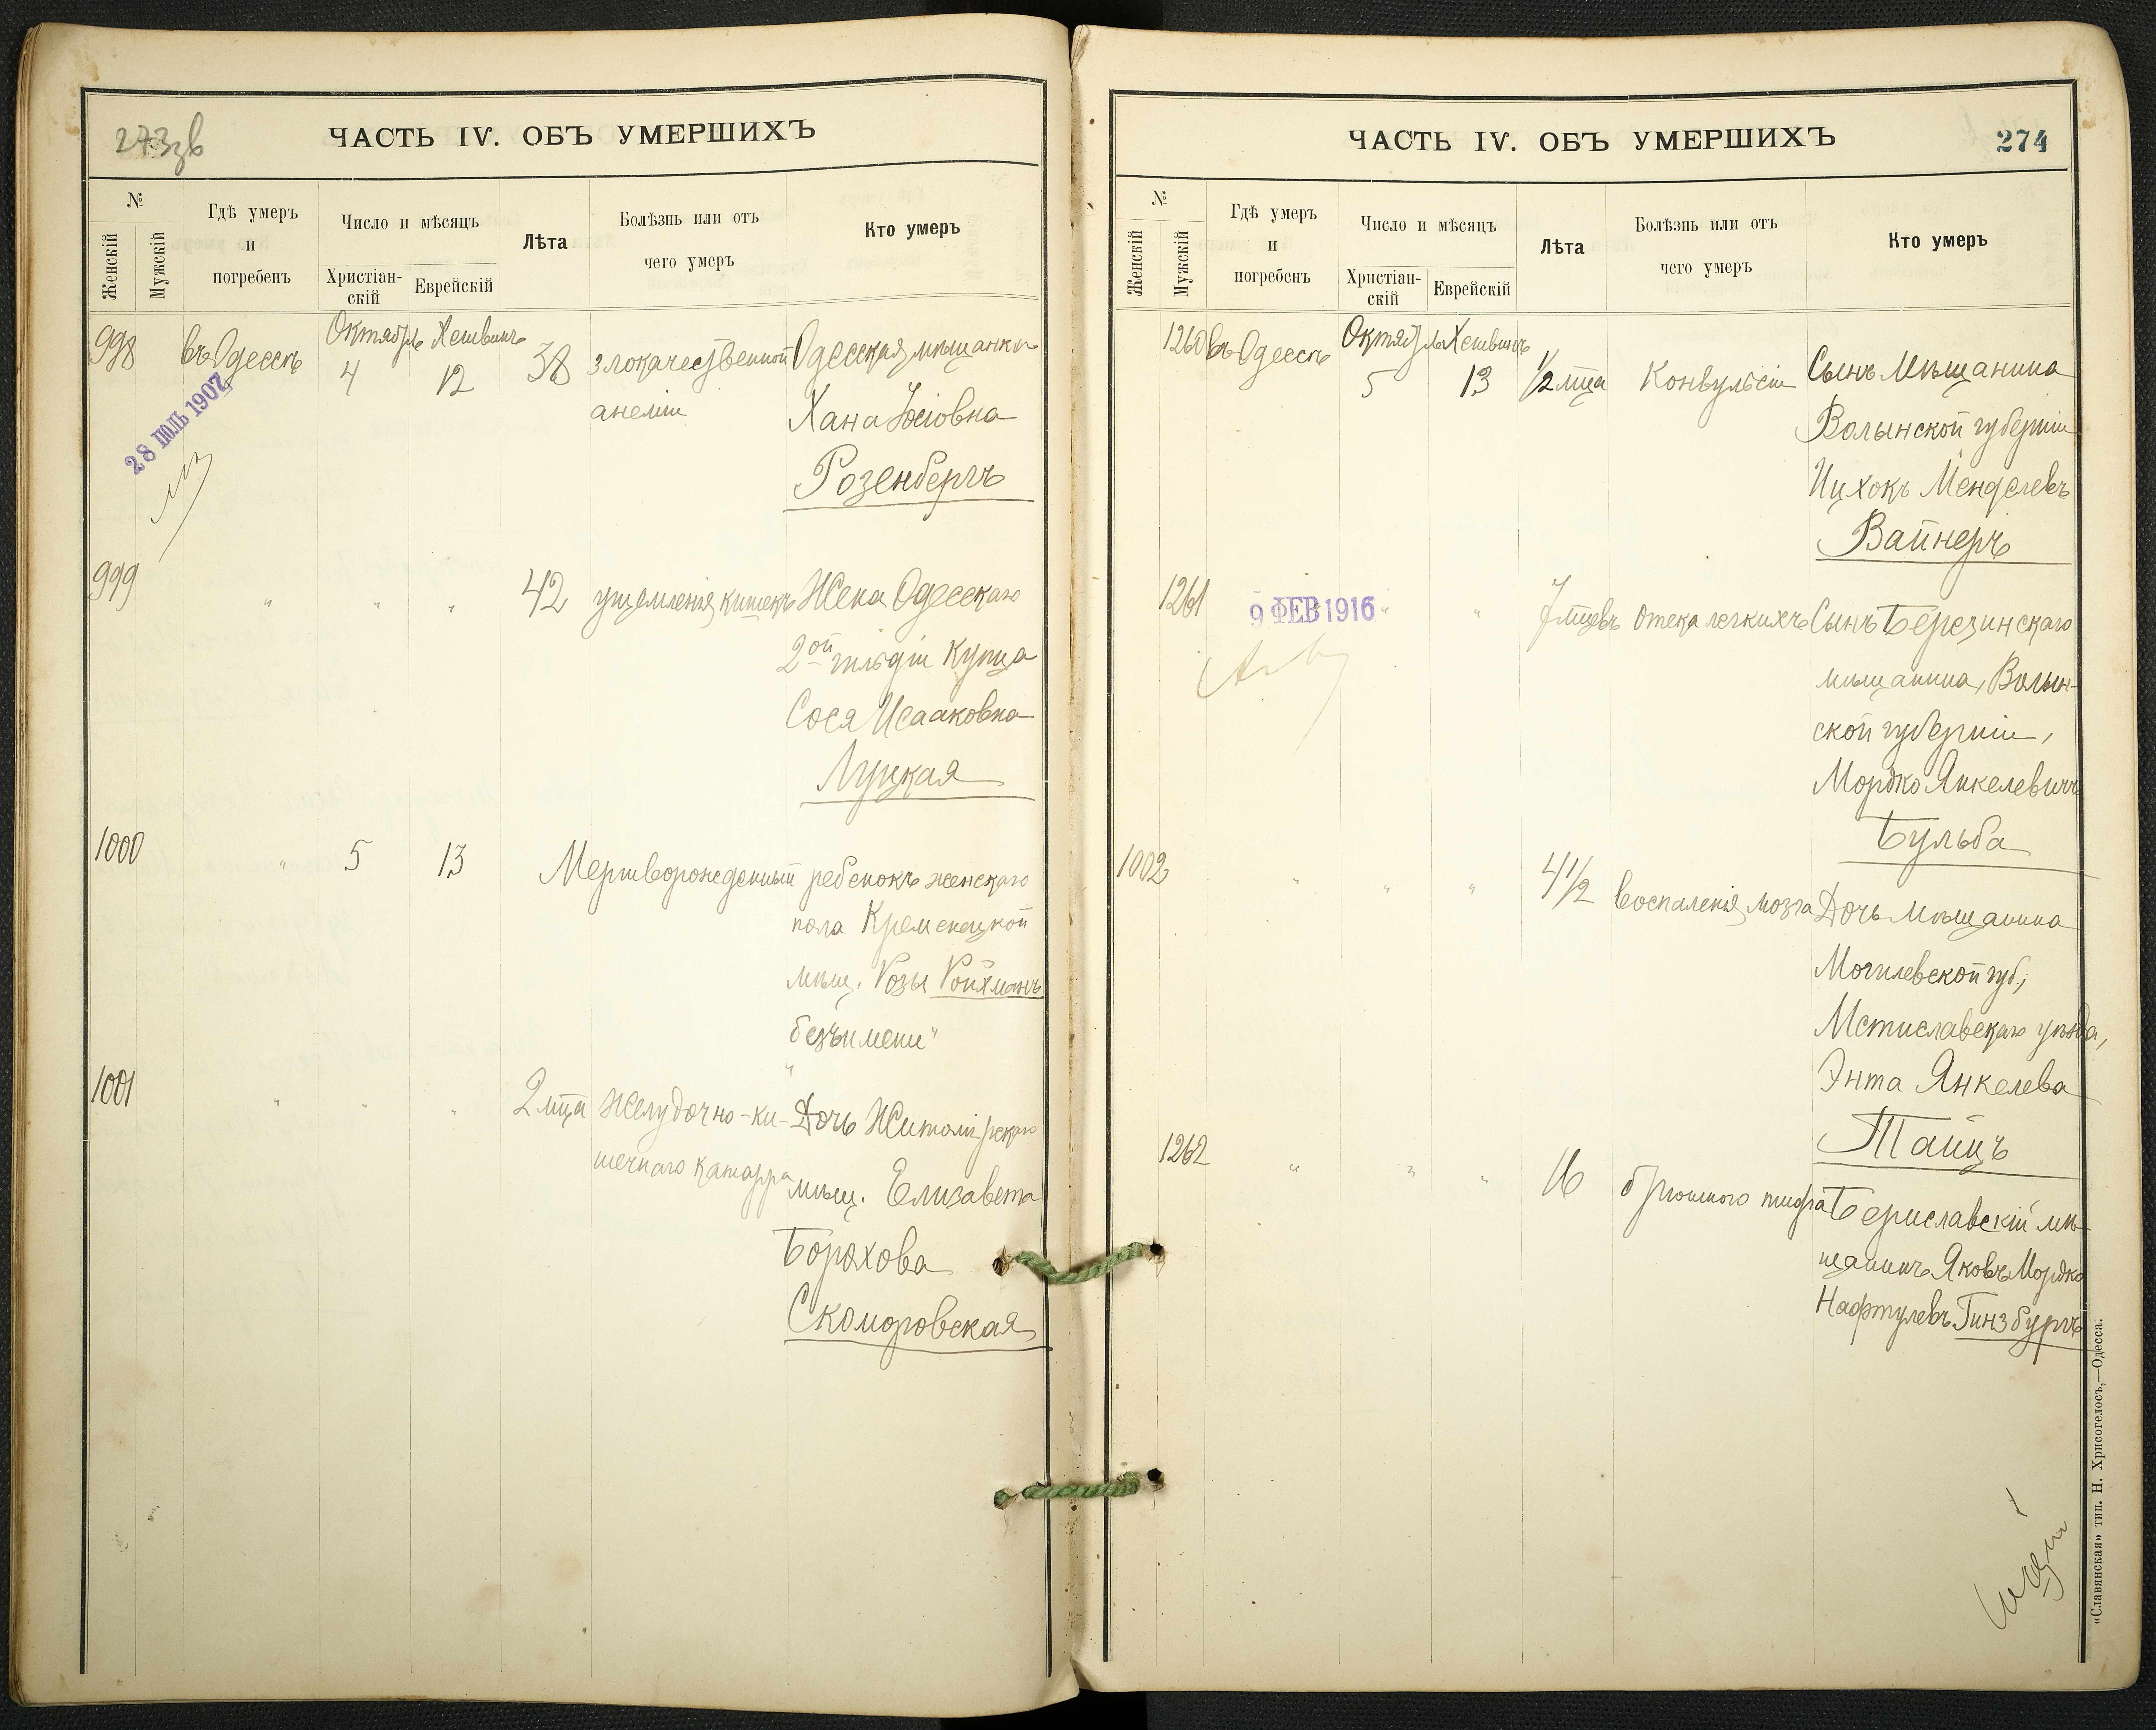 273зв
ЧАСТЬ IV. ОБЪ УМЕРШИХЪ
№
Женскій
Мужскій
Гдѣ умеръ
и
погребенъ
Число и мѣсяцъ
Христіан-
скій
Еврейскій
Лѣта
Болѣзнь или отъ
чего умеръ
Кто умеръ
998 въ Одессѣ Октябрь 4 Хешвинъ 12 38 злокачественной Одесская мѣщанка
анеміи Хана Іосіовна
Розенбергъ
28 ІЮЛЬ 1907
999 " " " 42 ущемленія кишекъ Жена Одесскаго
2ой гильдіи Купца
Сося Исааковна
Луцкая
1000 " 5 13 Мертворожденный ребенокъ женскаго
пола Кременецкой
мѣщ. Розы Ройхманъ
"безъ имени"
1001 " " " 2 мца Желудочно-ки- Дочь Житомірскаго
шечнаго катарра мѣщ. Елизавета
Борохова
Скоморовская
ЧАСТЬ IV. ОБЪ УМЕРШИХЪ
274
№
Женскій
Мужскій
Гдѣ умеръ
и
погребенъ
Число и мѣсяцъ
Христіан-
скій
Еврейскій
Лѣта
Болѣзнь или отъ
чего умеръ
Кто умеръ
1260 въ Одессѣ Октябрь 5 Хешвинъ 13 1/2 мца Конвульсіи Сынъ Мѣщанина
Волынской губерніи
Ицхокъ Менделевъ
Вайнеръ
1261 " " " 7 мцевъ отека легкихъ Сынъ Березинскаго
9 ФЕВ 1916
мѣщанина, Волын-
ской губерніи,
Мордко Янкелевичъ
Бульба
1002 " " " 4 1/2 воспаленія мозга Дочь мѣщанина
Могилевской губ.,
Мстиславскаго уѣзда,
Энта Янкелева
Тайцъ
1262 " " " 16 брюшного тифа Бериславскій мѣ-
щанинъ Яковъ Мордко
Нафтулевъ Гинзбургъ
"Славянская" тип. Н. Хрисогелосъ,—Одесса.